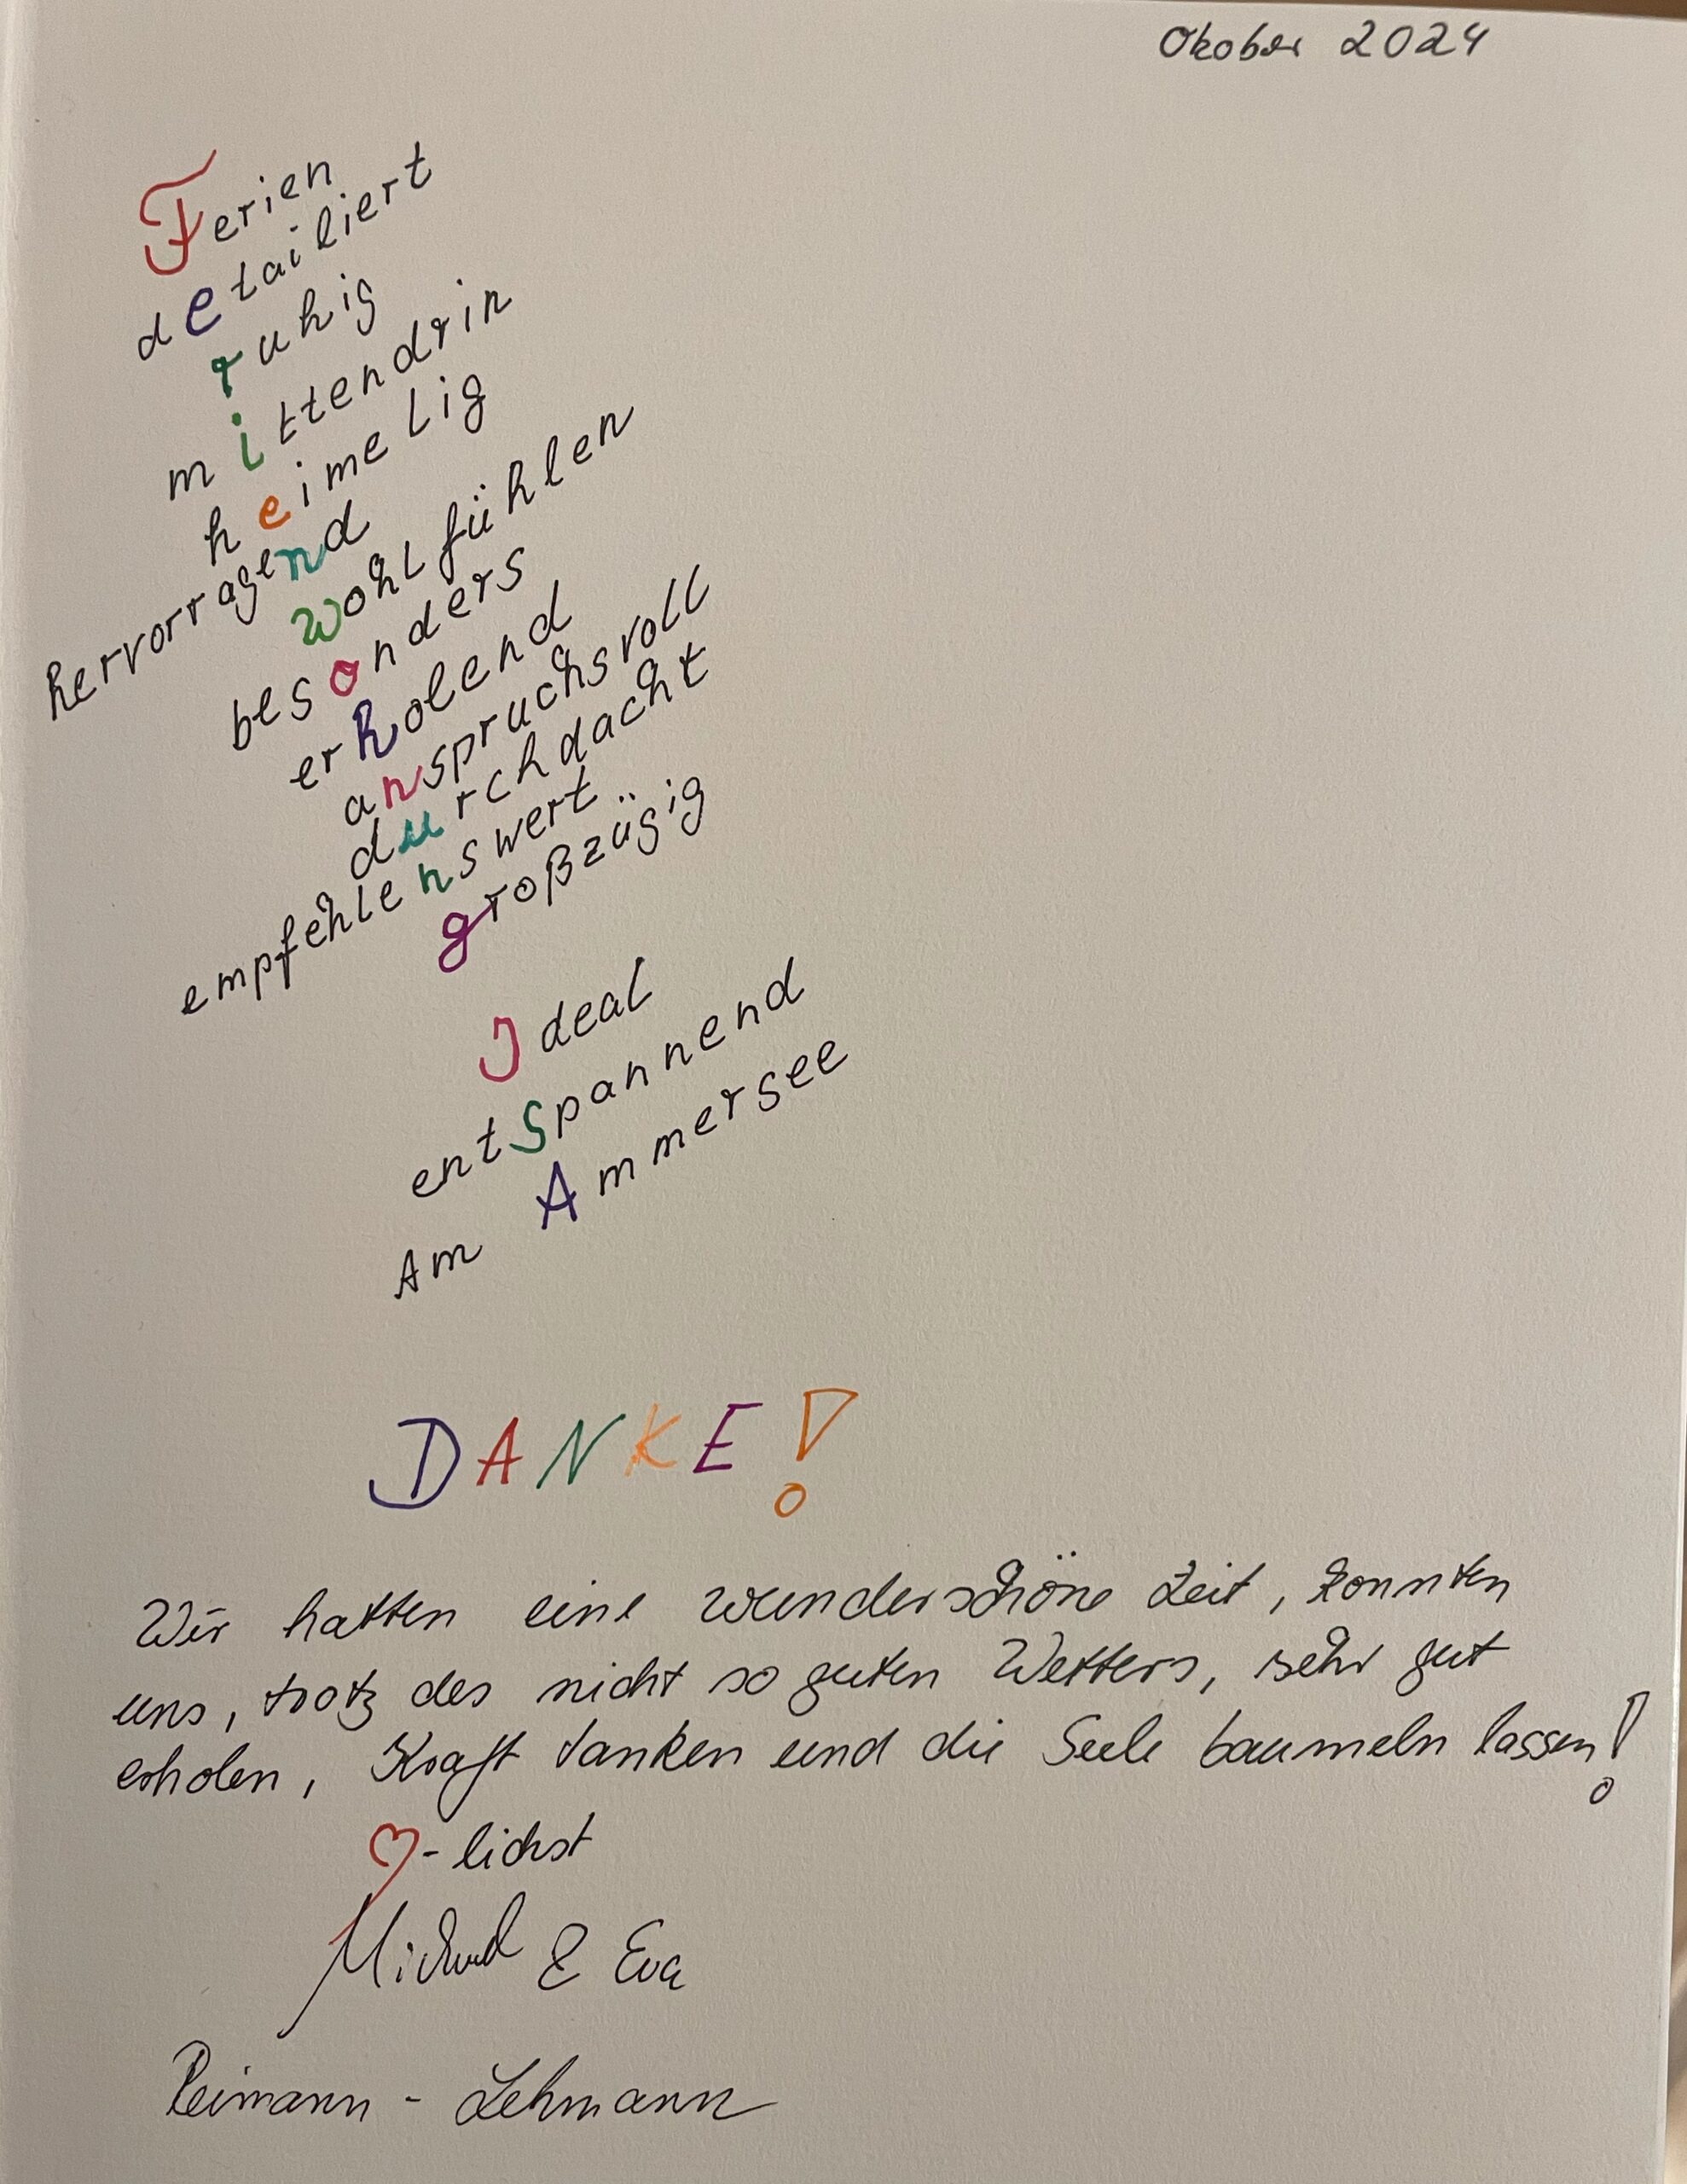 Okober 2024
Ferien
detailiert
ruhig
mittendrin
heimelig
hervorragend
wohlfühlen
besonders
erholend
anspruchsvoll
durchdacht
empfehlenswert
großzügig
Ideal
entSpannend
Am Ammersee
DANKE!
Wir hatten eine wunderschöne Zeit, konnten
uns, trotz des nicht so guten Wetters, sehr gut
erholen, Kraft tanken und die Seele baumeln lassen!
♡-lichst
Michael & Eva
Reimann - Lehmann